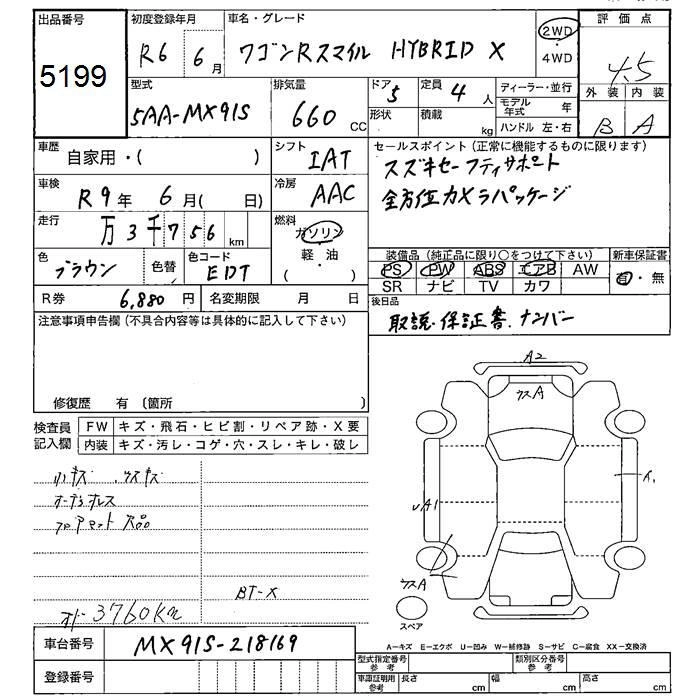 出品番号
5199
初度登録年月
R6 6月
車名・グレード
ワゴンRスマイル HYBRID X
2WD
4WD
評価点
4.5
外装 内装
B A
型式
5AA-MX91S
排気量
660 CC
ドア 5
形状
定員 4 人
積載 kg
ディーラー・並行
モデル年式 年
ハンドル 左・右
車歴
自家用・( )
シフト
IAT
セールスポイント(正常に機能するものに限ります)
スズキセーフティサポート
全方位カメラパッケージ
車検
R9年 6月( 日)
冷房
AAC
走行
万3千756 km
燃料
ガソリン
軽・油
( )
色
ブラウン
色替
色コード
EDT
装備品(純正品に限り○をつけて下さい)
PS PW ABS エアB AW
SR ナビ TV カワ
新車保証書
有・無
R券 6,880 円
名変期限 月 日
後日品
取説・保証書・ナンバー
注意事項申告欄(不具合内容等は具体的に記入して下さい)
修復歴 有(箇所 )
検査員記入欄
FW キズ・飛石・ヒビ割・リペア跡・X要
内装 キズ・汚レ・コゲ・穴・スレ・キレ・破レ
フロアマット欠品
BT-X
3760km
A2
ウスA
A1
ウスA
スペア
A-キズ E-エクボ U-凹み W-補修跡 S-サビ C-腐食 XX-交換済
車台番号
MX91S-218169
登録番号
型式指定番号 参考
類別区分番号 参考
車庫証明用 参考
長さ cm
幅 cm
高さ cm